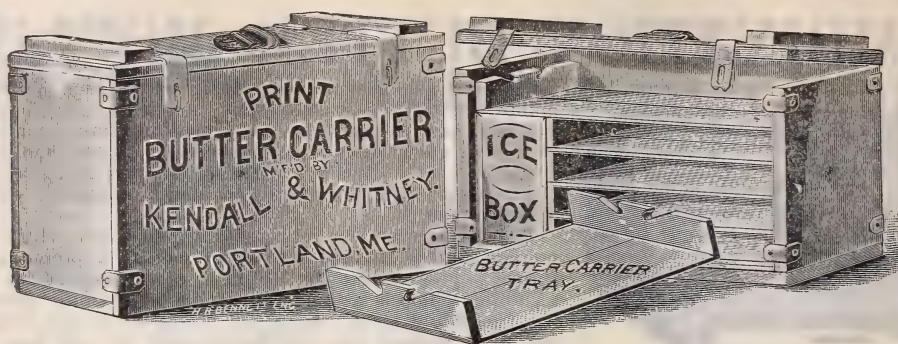 PRINT
BUTTER CARRIER
M'F'D BY
KENDALL & WHITNEY.
PORTLAND, ME.
H R BENNETT ENG
ICE
BOX
BUTTER CARRIER
TRAY.